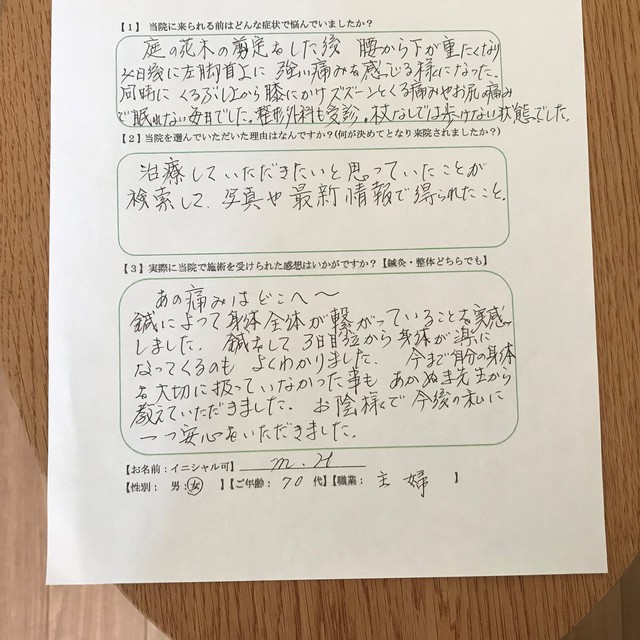 【1】 当院に来られる前はどんな症状で悩んでいましたか？
庭の花木の剪定をした後 腰から下が重たくなり
2日後に左脚首上に強い痛みを感じる様になった。
同時にくるぶし上から膝にかけズズーンとくる痛みやお尻の痛み
で眠れない毎日でした。整形外科も受診。杖なしでは歩けない状態でした。
【2】当院を選んでいただいた理由はなんですか？(何が決めてとなり来院されましたか？)
治療していただきたいと思っていたことが
検索して、写真や最新情報で得られたこと。
【3】実際に当院で施術を受けられた感想はいかがですか？【鍼灸・整体どちらでも】
あの痛みはどこへ～
鍼によって身体全体が繋がっていることを実感
しました。鍼をして3日目位から身体が楽に
なってくるのも よくわかりました。 今まで自分の身体
を大切に扱っていなかった事も あかぬま先生から
教えていただきました。お陰様で今後の私に
一つ安心をいただきました。
【お名前：イニシャル可】 M.H
【性別： 男・女 】【ご年齢： 70 代】【職業： 主婦 】